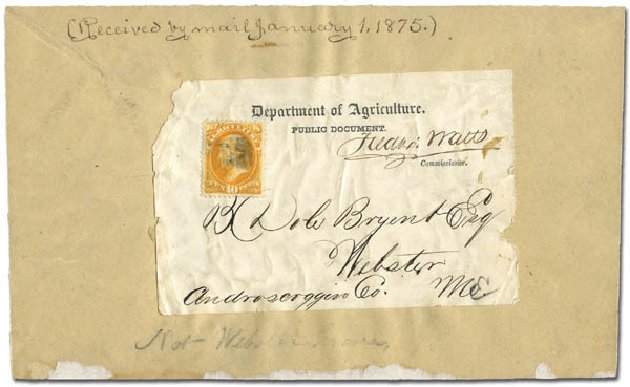 (Received by mail January 1, 1875.)
Department of Agriculture.
PUBLIC DOCUMENT.
Fredk. Watts
Commissioner.
AGRICULTURE
TEN 10 CENTS
Bryent Esq
Webster
Androscoggin Co. Me
Not Webster